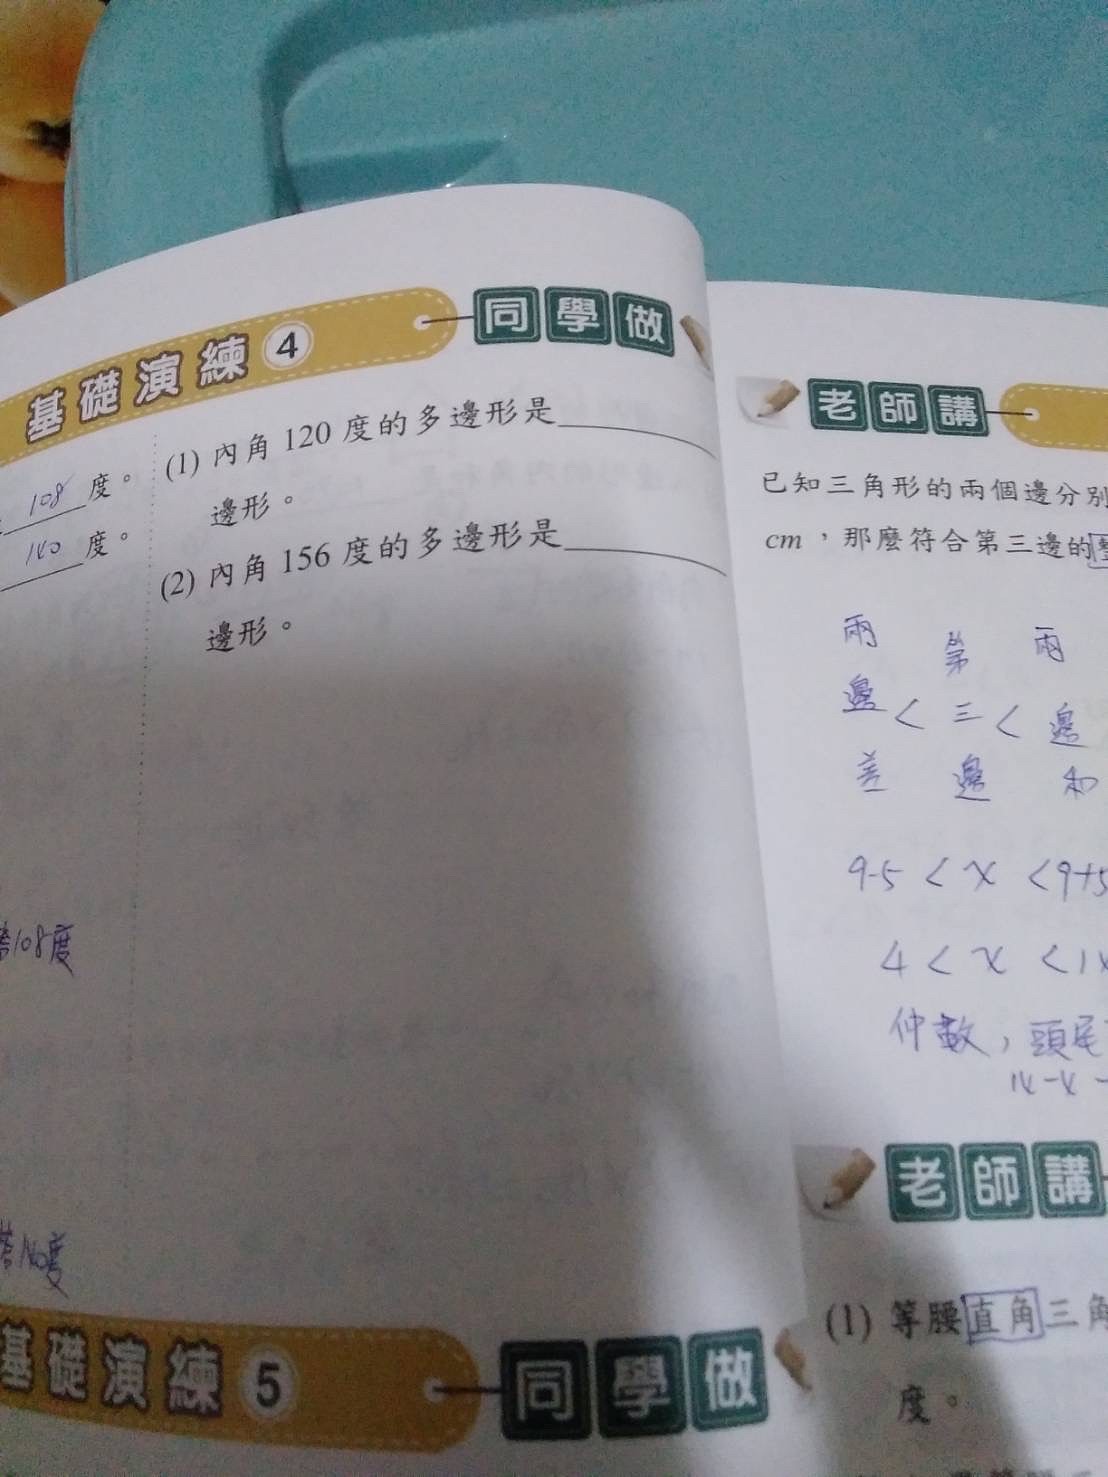 基礎演練 4 同學做
108 度。
140 度。
(1) 內角 120 度的多邊形是
邊形。
(2) 內角 156 度的多邊形是
邊形。
答108度
答140度
基礎演練 5 同學做
老師講
已知三角形的兩個邊分別
cm，那麼符合第三邊的
兩邊差 < 第三邊 < 兩邊和
9-5 < x < 9+5
4 < x < 14
仲數，頭尾
14-4-
老師講
(1) 等腰直角三角
度。